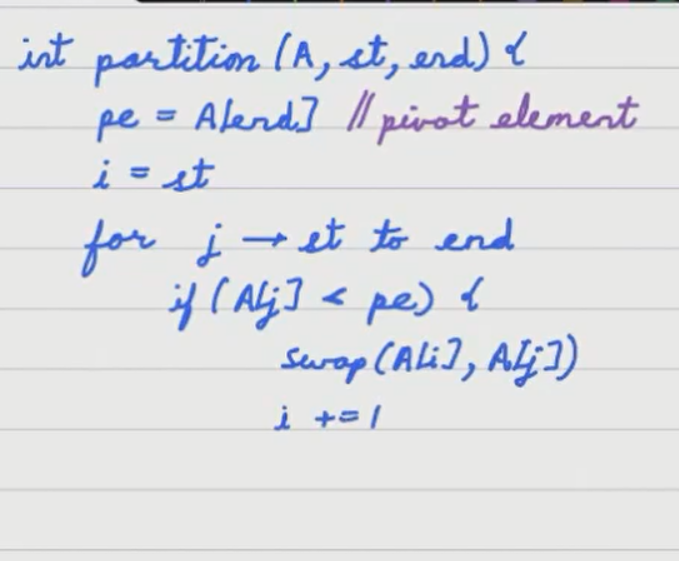 int partition (A, st, end) {
pe = A[end] // pivot element
i = st
for j → st to end
if (A[j] < pe) {
swap (A[i], A[j])
i += 1